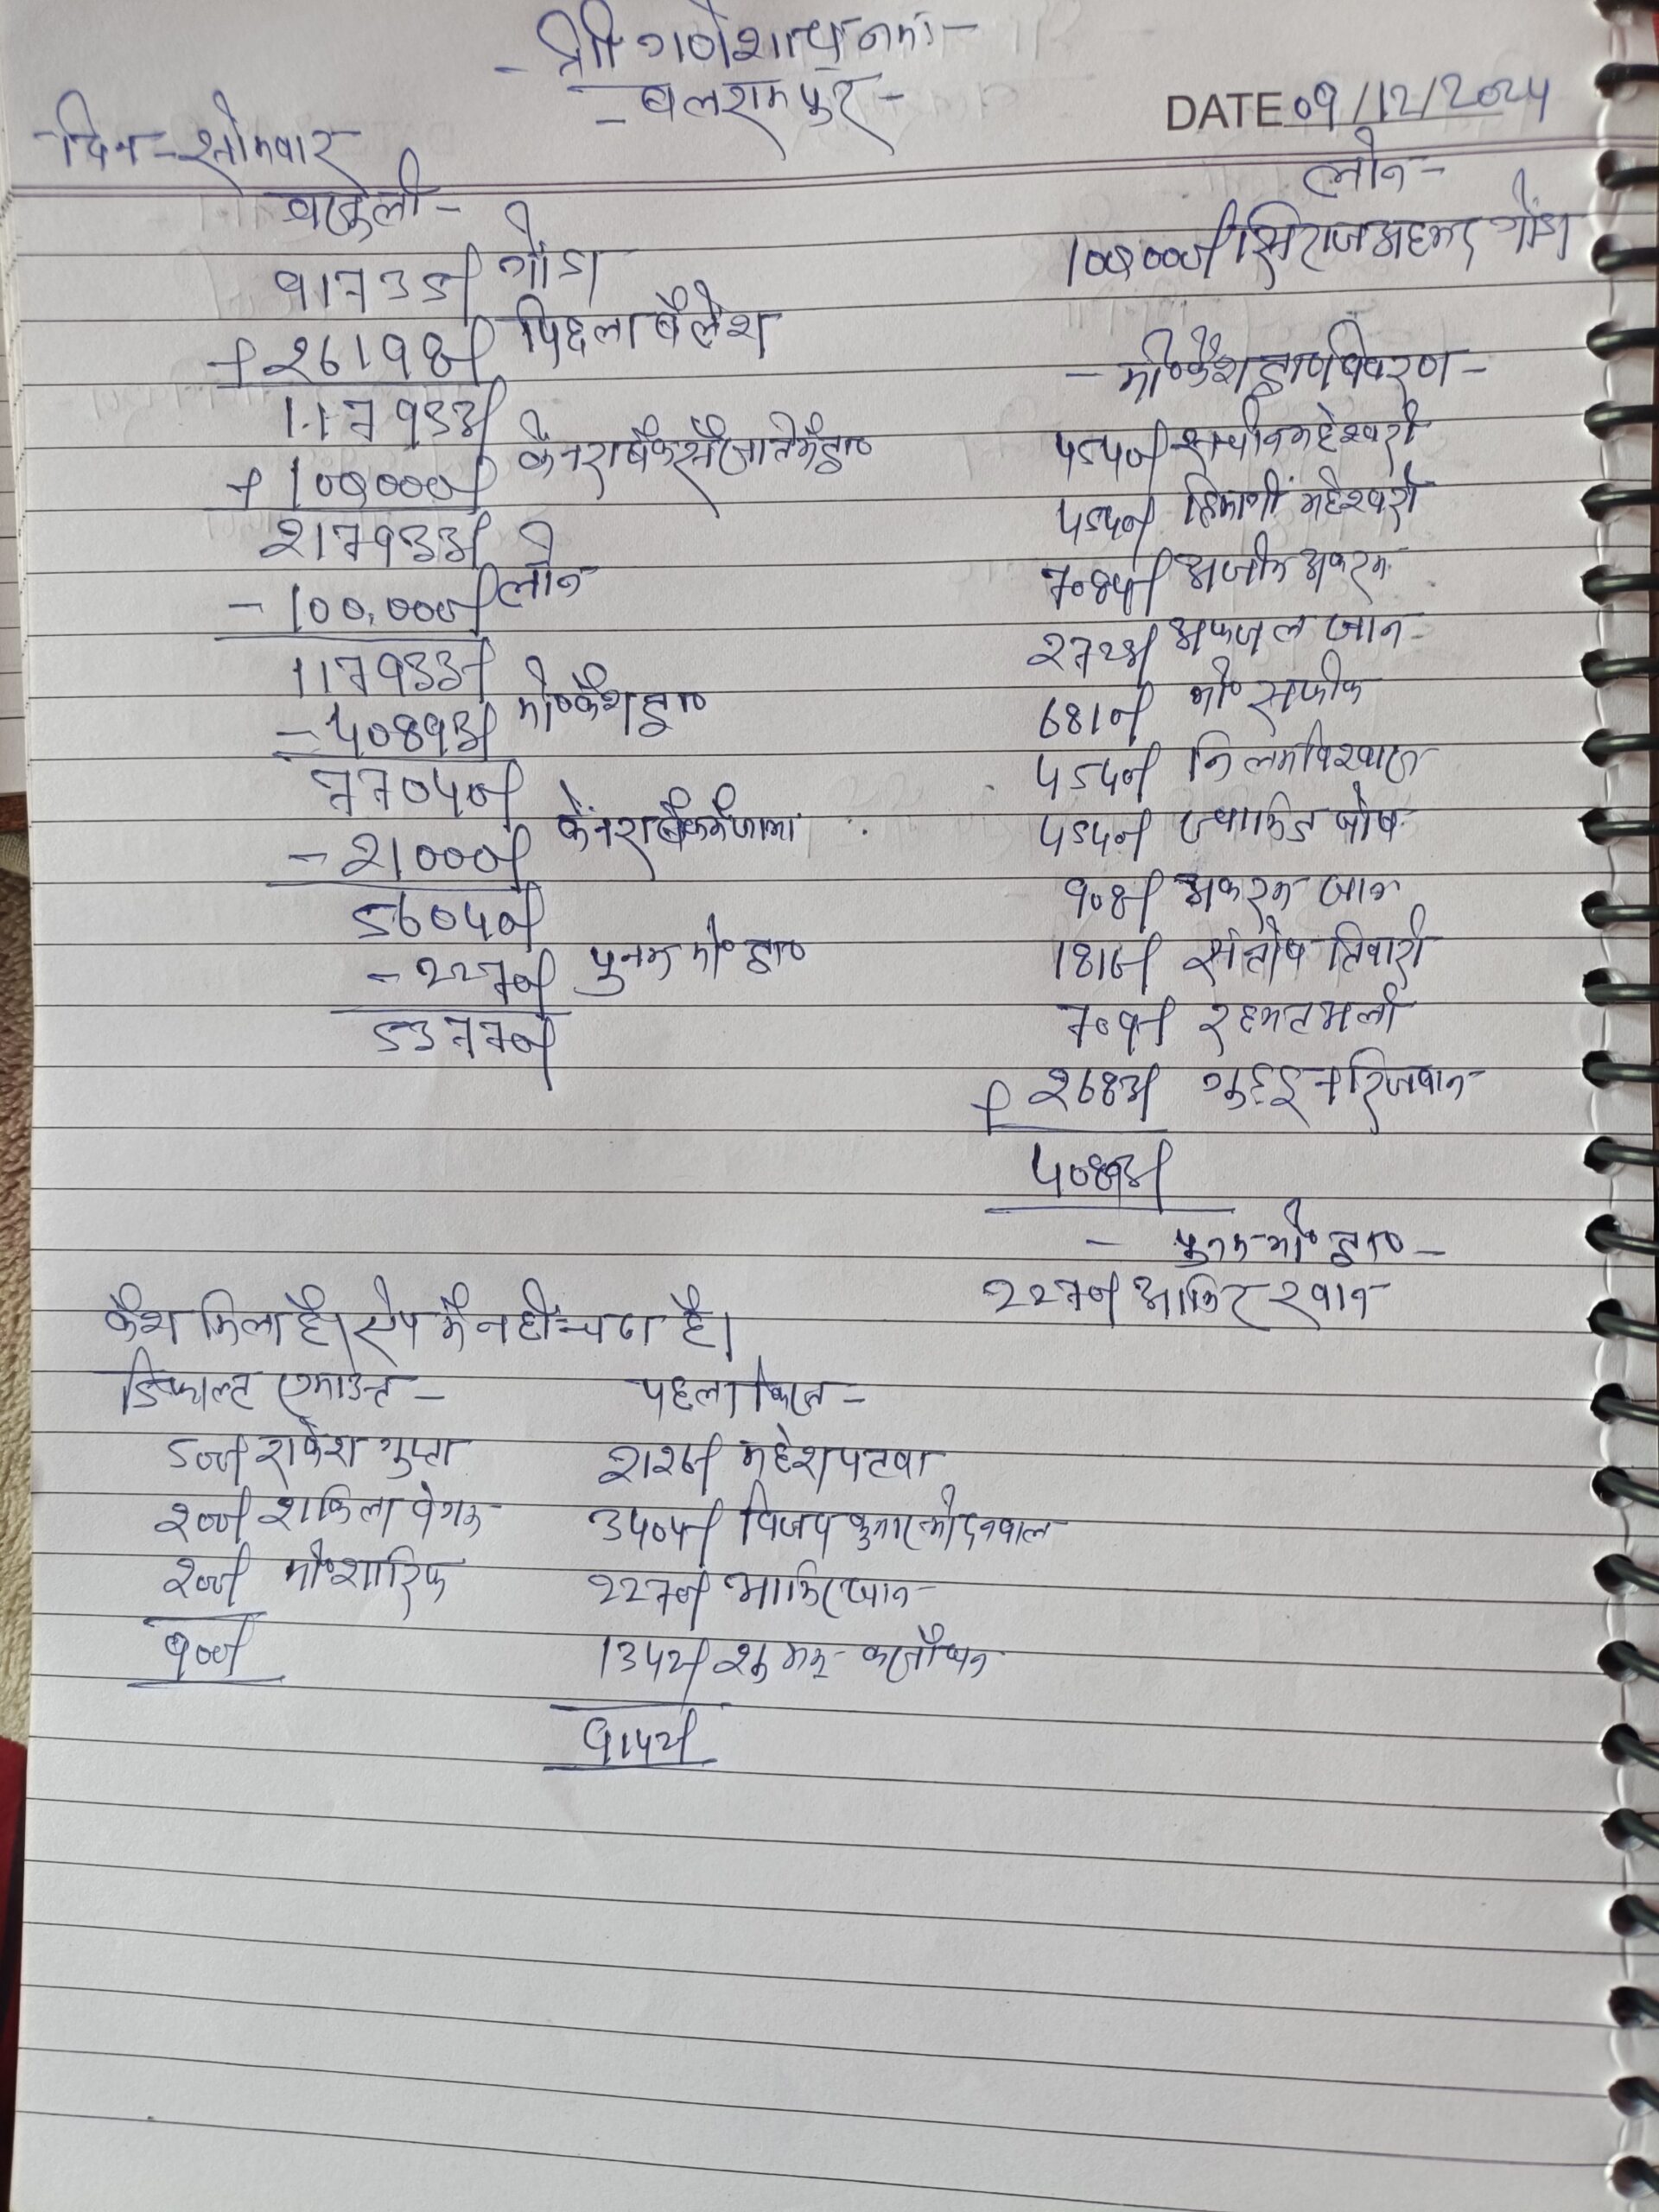 - श्री गणेशाय नमः -
- बलरामपुर -
DATE 09/12/2024
- दिन - सोमवार
वसूली -
91735/ गोंडा
+ 26198/ पिछला बैलेंश
117933/
+ 100000/ केनरा बैंक से खाते में ट्रा०
217933/
- 100,000/ लोन
117933/
- 40893/ मो० कैश ट्रा०
77040/
- 21000/ केनरा बैंक में जमा
56040/
- 2270/ पुनम मो० ट्रा०
53770/
लोन -
100,000/ सिराज अहमद गोंडा
- मो० कैश ट्रा० विवरण -
4540/ सचीन महेश्वरी
4540/ हिमानी महेश्वरी
7084/ अजीम अकरम
2723/ अफजल खान
6810/ मो० सफीक
4540/ निलम विश्वास
4540/ घोष
908/ अकरम खान
1816/ संतोष तिवारी
709/ रहमत अली
+ 2683/ रिजवान
40893/
- पुनम मो० ट्रा० -
2270/ आमिर खान
कैश मिला है। ऐप में नहीं चढ़ा है।
डिफाल्ट एमाउन्ट -
500/ राकेश गुप्ता
200/ शकिला बेगम
200/ मो० शारिक
900/
पहला किस्त -
2126/ महेश पटवा
3404/ विजय कुमार मोदनवाल
2270/ आमिर खान
1342/
9142/